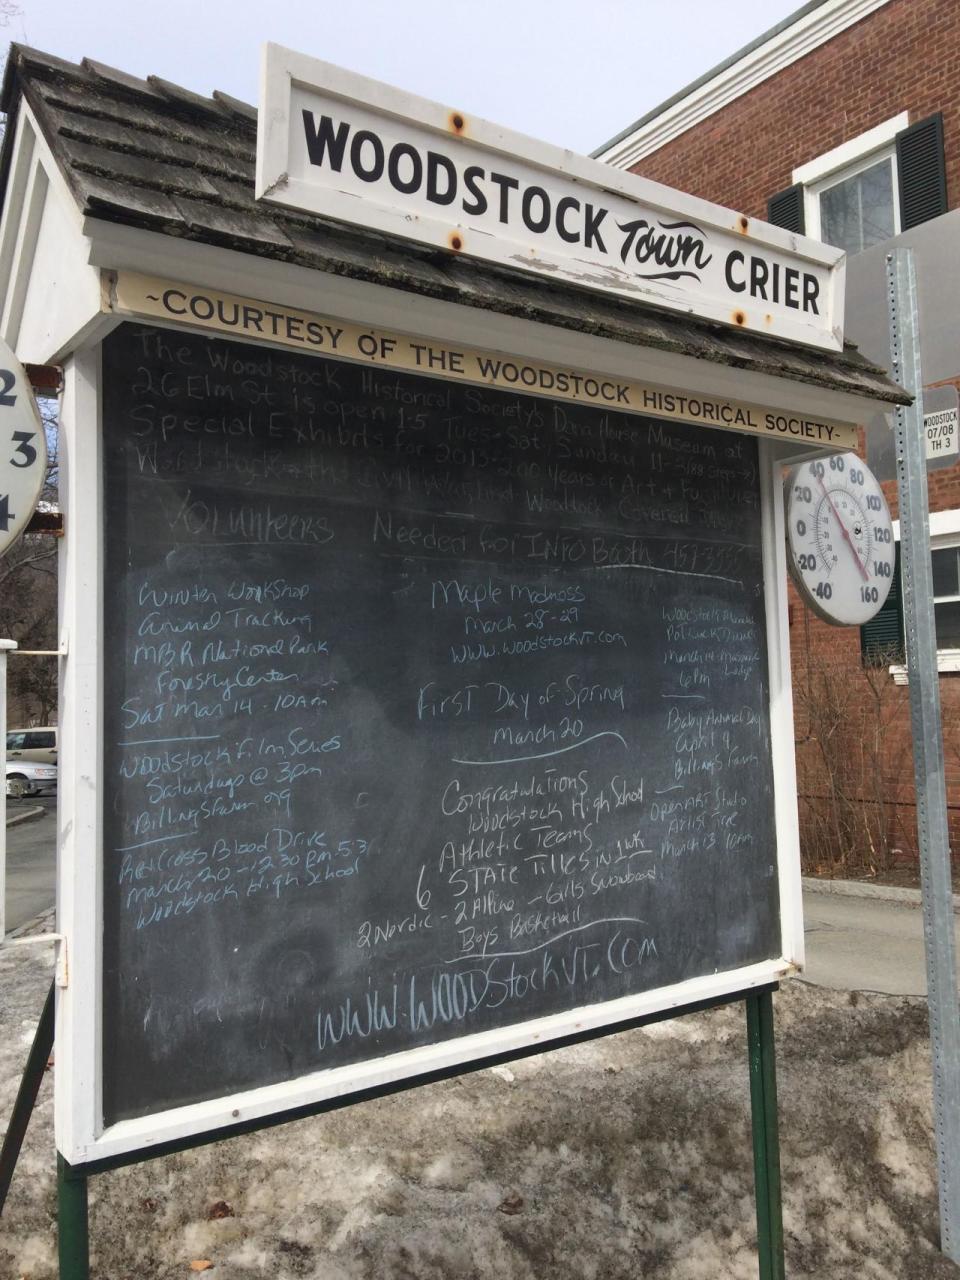 WOODSTOCK Town CRIER
~COURTESY OF THE WOODSTOCK HISTORICAL SOCIETY~
The Woodstock Historical Society's Dana House Museum at
26 Elm St. is open 1-5 Tues-Sat, Sunday 11-3
Special Exhibits for 2015-200 years of Art + Furniture
Woodstock and the Civil War, Woodstock Covered
Volunteers Needed for INFO Booth 457-3555
Winter Workshop
Animal Tracking
MBR National Park
Forestry Center
Sat Mar 14 - 10Am
Woodstock Film Series
Saturdays @ 3pm
Billings Farm
Red Cross Blood Drive
March 20 - 12:30 pm - 5:3
Woodstock High School
Maple Madness
March 28-29
www.woodstockvt.com
First Day of Spring
March 20
Congratulations
Woodstock High School
Athletic Teams
6 STATE TITLES in 1 wk
2 Nordic - 2 Alpine - Girls Snowboard
Boys Basketball
www.WOODStockVT.Com
Woodstock
Pot Luck Dinner
March 14
6 PM
Baby Animal Day
April 4
Billings Farm
Open ART Studio
Artist Tree
March 13 10am
2
3
4
-40 -20 0 20 40 60 80 100 120 140 160
WOODSTOCK
07/08
TH 3